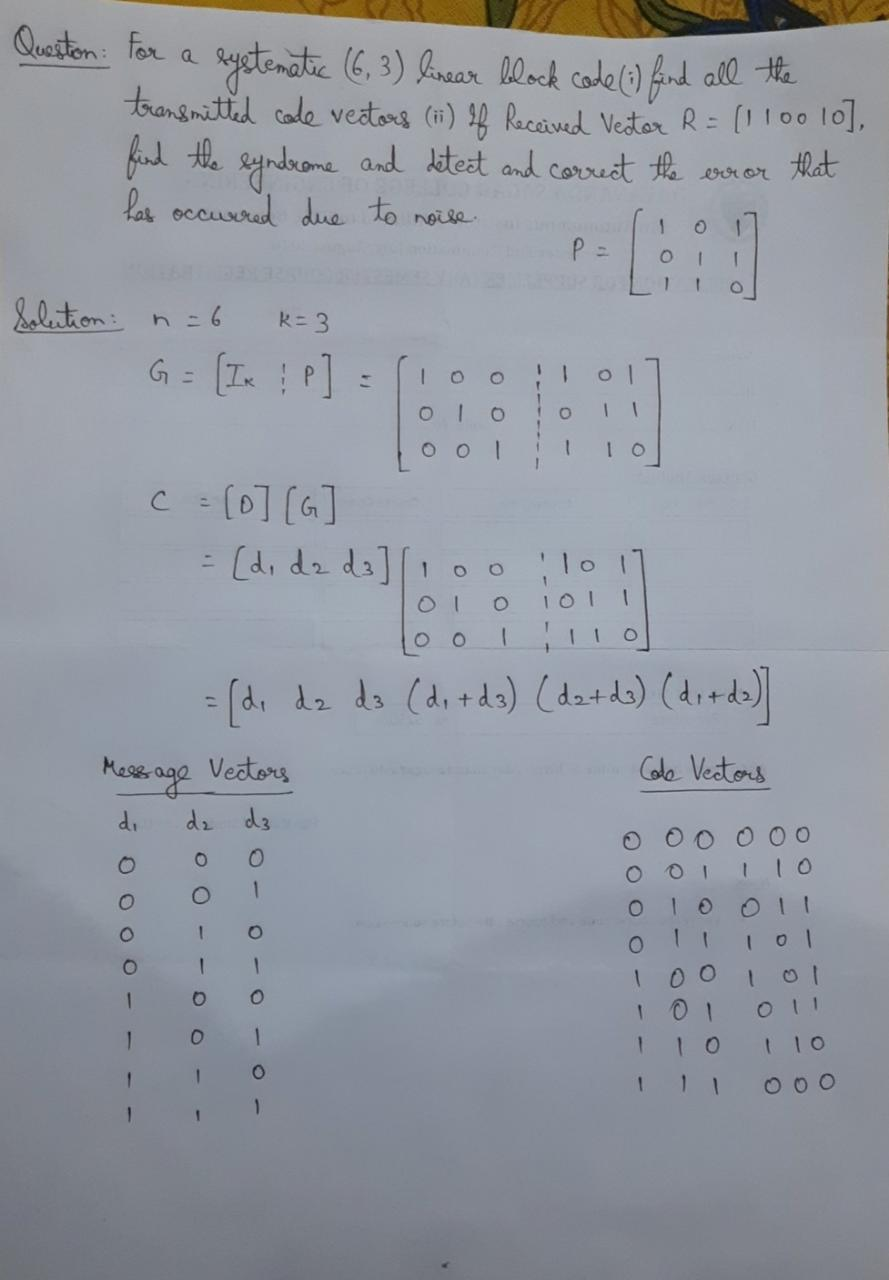 Question: For a systematic (6, 3) linear block code (i) find all the
transmitted code vectors (ii) If Received Vector R = [1 1 0 0 1 0],
find the syndrome and detect and correct the error that
has occurred due to noise.
P = [1 0 1
0 1 1
1 1 0]
Solution: n = 6 k = 3
G = [Iₖ ¦ P] = [1 0 0 ¦ 1 0 1
0 1 0 ¦ 0 1 1
0 0 1 ¦ 1 1 0]
C = [D] [G]
= [d₁ d₂ d₃] [1 0 0 ¦ 1 0 1
0 1 0 ¦ 0 1 1
0 0 1 ¦ 1 1 0]
= [d₁ d₂ d₃ (d₁ + d₃) (d₂ + d₃) (d₁ + d₂)]
Message Vectors Code Vectors
d₁ d₂ d₃
0 0 0 0 0 0 0 0 0
0 0 1 0 0 1 1 1 0
0 1 0 0 1 0 0 1 1
0 1 1 0 1 1 1 0 1
1 0 0 1 0 0 1 0 1
1 0 1 1 0 1 0 1 1
1 1 0 1 1 0 1 1 0
1 1 1 1 1 1 0 0 0